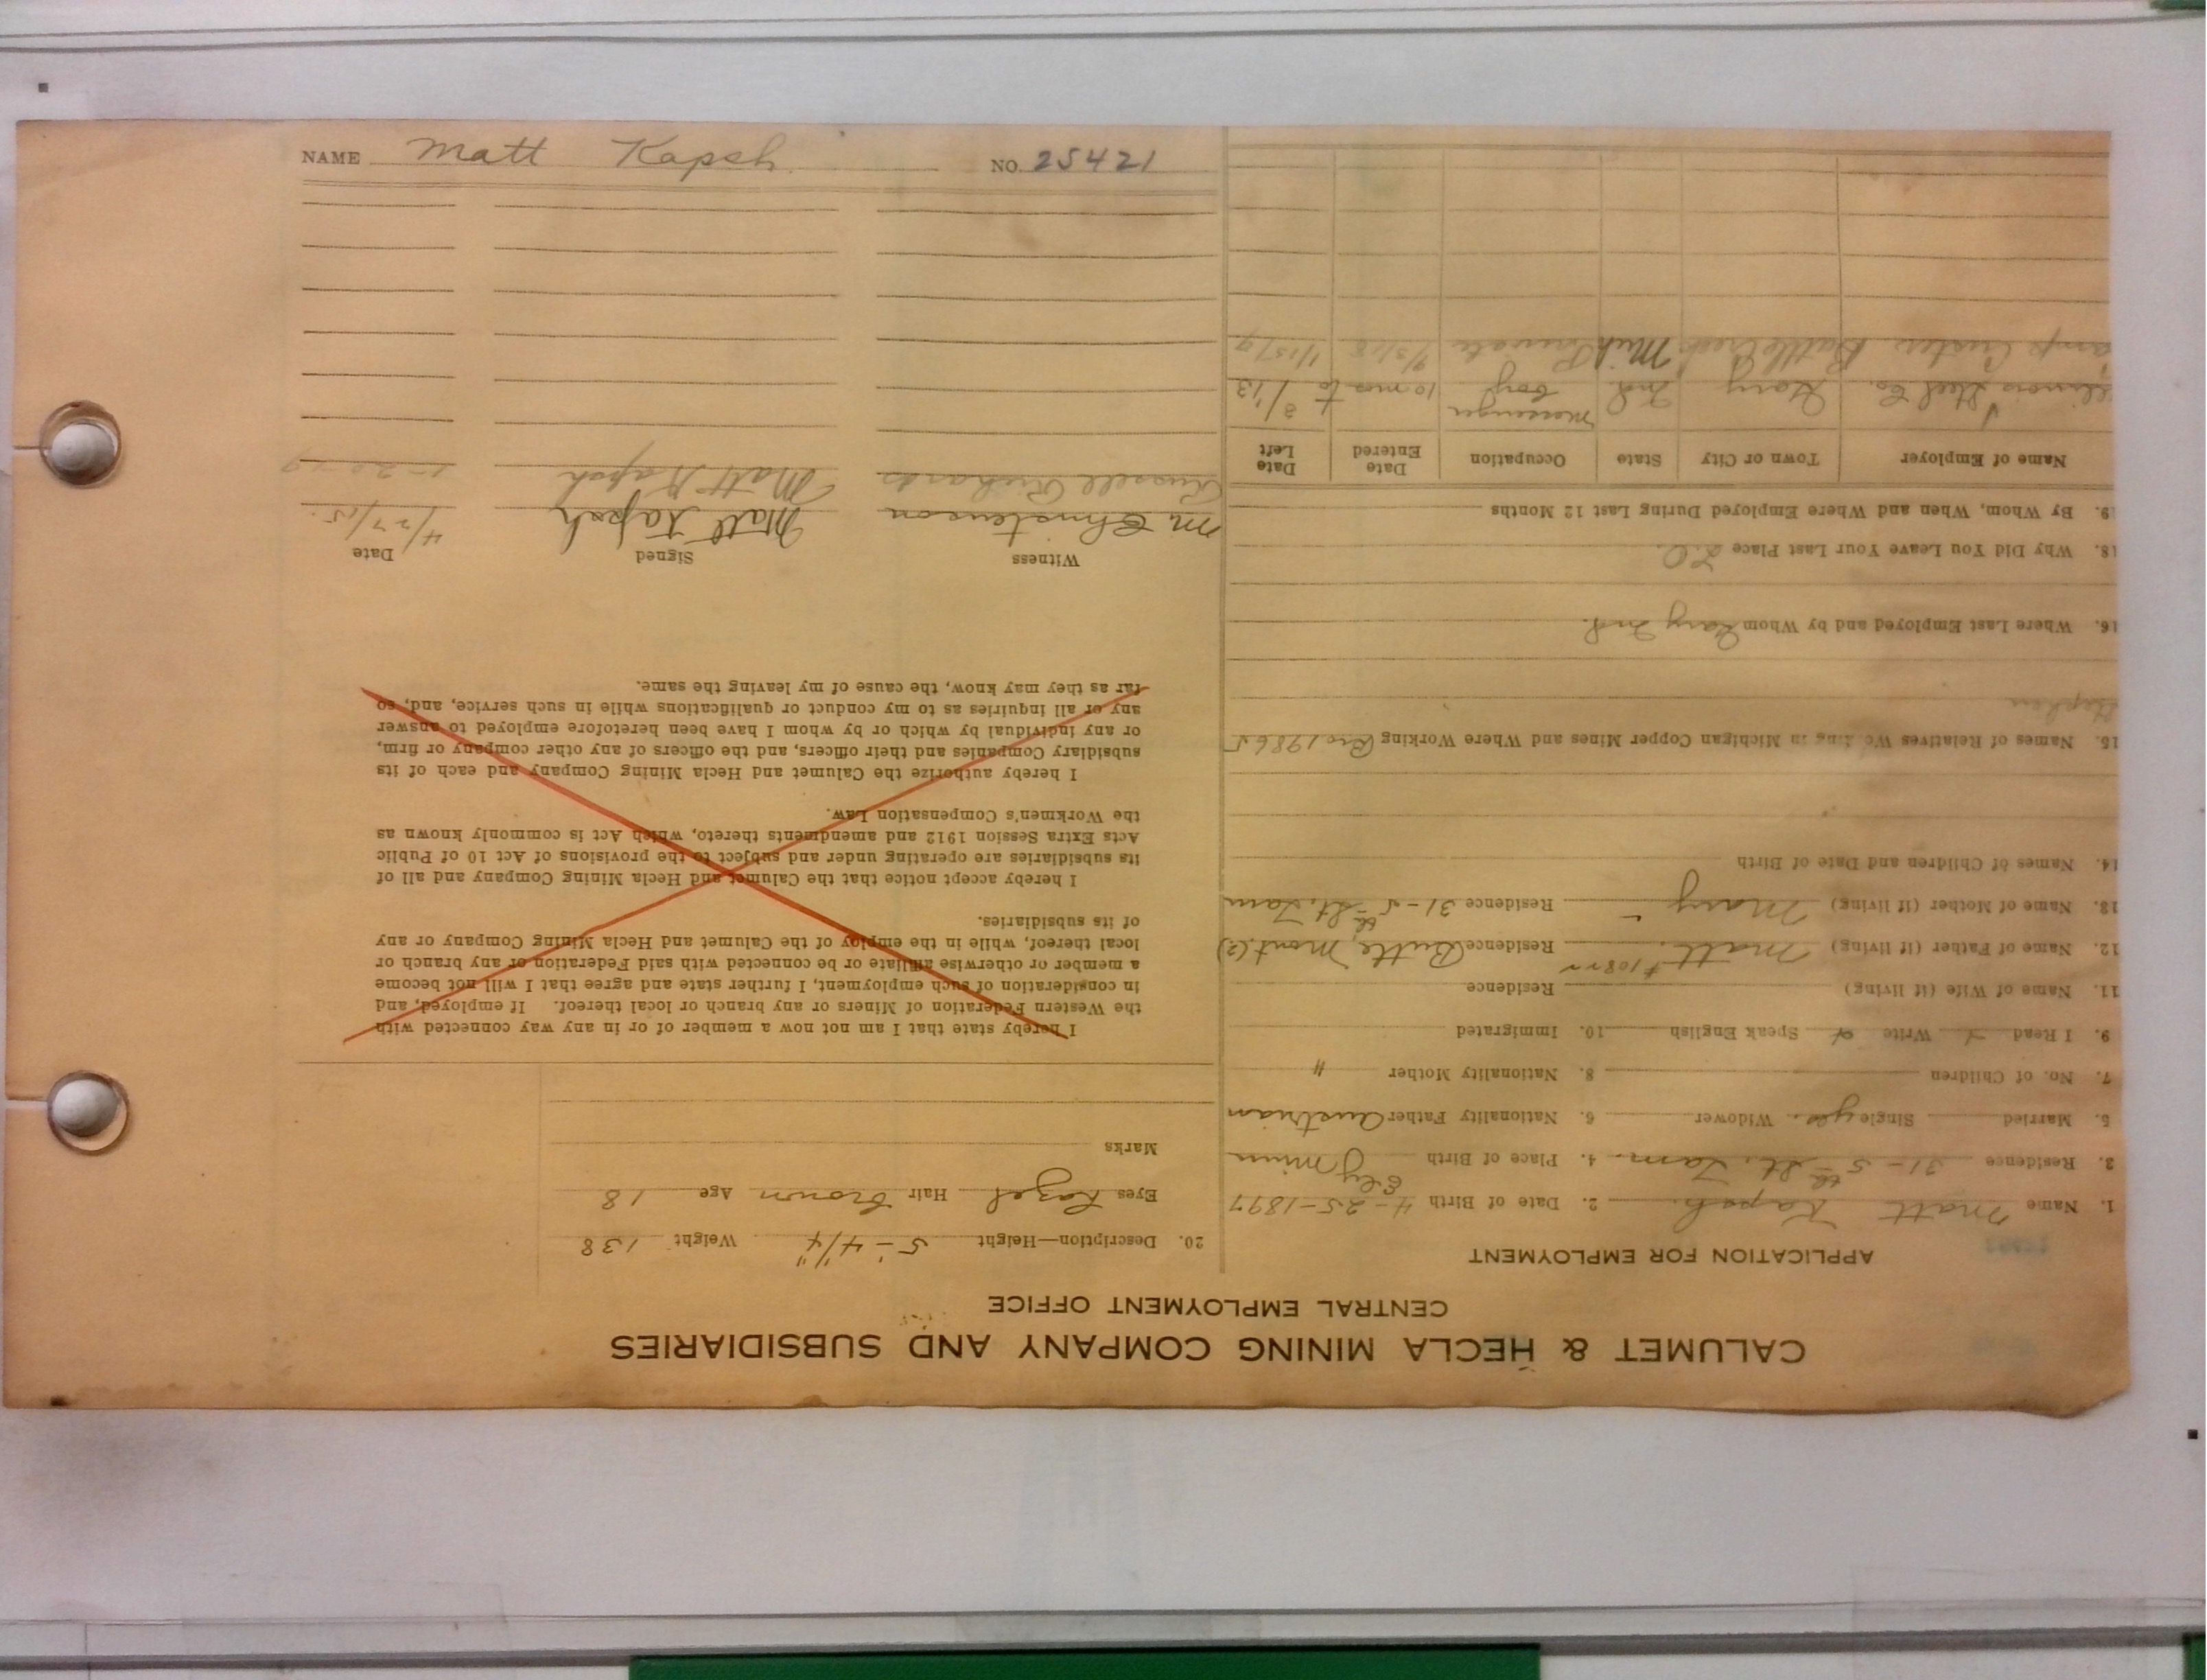 CALUMET & HECLA MINING COMPANY AND SUBSIDIARIES
CENTRAL EMPLOYMENT OFFICE
APPLICATION FOR EMPLOYMENT
1. Name Matt Kapsh. 2. Date of Birth 4-25-1897
3. Residence 31-5th St. Tam. 4. Place of Birth Ely Minn
5. Married Single yes. Widower 6. Nationality Father Austrian
7. No. of Children 8. Nationality Mother "
9. I Read Write Speak English 10. Immigrated
11. Name of Wife (if living) Residence
12. Name of Father (if living) Matt. Residence Butte, Mont. (2)
13. Name of Mother (if living) Mary Residence 31-5th St. Tam
14. Names of Children and Date of Birth
15. Names of Relatives Working in Michigan Copper Mines and Where Working Bro 19865
Stephen
16. Where Last Employed and by Whom Gary Ind.
18. Why Did You Leave Your Last Place L.O.
19. By Whom, When and Where Employed During Last 12 Months
Name of Employer Town or City State Occupation Date Entered Date Left
Illinois Steel Co. Gary Ind. messenger boy 10 mos to 8/13
Camp Custer Battle Creek Mich Private 9/3/18 1/15/19
20. Description—Height 5'-4 1/4" Weight 138
Eyes Hazel Hair Brown Age 18
Marks
I hereby state that I am not now a member of or in any way connected with
the Western Federation of Miners or any branch or local thereof. If employed, and
in consideration of such employment, I further state and agree that I will not become
a member or otherwise affiliate or be connected with said Federation or any branch or
local thereof, while in the employ of the Calumet and Hecla Mining Company or any
of its subsidiaries.
I hereby accept notice that the Calumet and Hecla Mining Company and all of
its subsidiaries are operating under and subject to the provisions of Act 10 of Public
Acts Extra Session 1912 and amendments thereto, which Act is commonly known as
the Workmen's Compensation Law.
I hereby authorize the Calumet and Hecla Mining Company and each of its
subsidiary Companies and their officers, and the officers of any other company or firm,
or any individual by which or by whom I have been heretofore employed to answer
any or all inquiries as to my conduct or qualifications while in such service, and, so
far as they may know, the cause of my leaving the same.
Witness Signed Date
M Christenson Matt Kapsh 4/27/15.
Russell Richards Matt Kapsh 1-20-19
NAME Matt Kapsh. NO. 25421